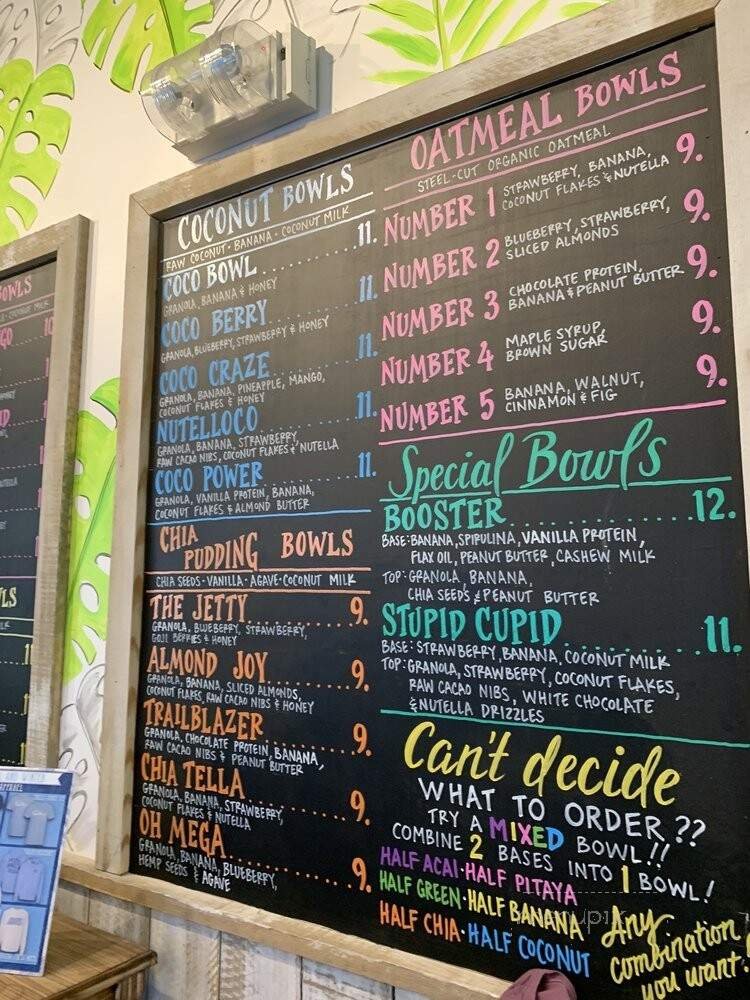 COCONUT BOWLS
RAW COCONUT · BANANA · COCONUT MILK
COCO BOWL 11.
GRANOLA, BANANA & HONEY
COCO BERRY 11.
GRANOLA, BLUEBERRY, STRAWBERRY & HONEY
COCO CRAZE 11.
GRANOLA, BANANA, PINEAPPLE, MANGO,
COCONUT FLAKES & HONEY
NUTELLOCO 11.
GRANOLA, BANANA, STRAWBERRY,
RAW CACAO NIBS, COCONUT FLAKES & NUTELLA
COCO POWER 11.
GRANOLA, VANILLA PROTEIN, BANANA,
COCONUT FLAKES & ALMOND BUTTER
CHIA
PUDDING BOWLS
CHIA SEEDS · VANILLA · AGAVE · COCONUT MILK
THE JETTY 9.
GRANOLA, BLUEBERRY, STRAWBERRY,
GOJI BERRIES & HONEY
ALMOND JOY 9.
GRANOLA, BANANA, SLICED ALMONDS,
COCONUT FLAKES, RAW CACAO NIBS & HONEY
TRAILBLAZER 9.
GRANOLA, CHOCOLATE PROTEIN, BANANA,
RAW CACAO NIBS & PEANUT BUTTER
CHIA TELLA 9.
GRANOLA, BANANA, STRAWBERRY,
COCONUT FLAKES & NUTELLA
OH MEGA 9.
GRANOLA, BANANA, BLUEBERRY,
HEMP SEEDS & AGAVE
OATMEAL BOWLS
STEEL-CUT ORGANIC OATMEAL
NUMBER 1 STRAWBERRY, BANANA, 9.
COCONUT FLAKES & NUTELLA
NUMBER 2 BLUEBERRY, STRAWBERRY, 9.
SLICED ALMONDS
NUMBER 3 CHOCOLATE PROTEIN, 9.
BANANA & PEANUT BUTTER
NUMBER 4 MAPLE SYRUP, 9.
BROWN SUGAR
NUMBER 5 BANANA, WALNUT, 9.
CINNAMON & FIG
Special Bowls
BOOSTER 12.
BASE: BANANA, SPIRULINA, VANILLA PROTEIN,
FLAX OIL, PEANUT BUTTER, CASHEW MILK
TOP: GRANOLA, BANANA,
CHIA SEEDS & PEANUT BUTTER
STUPID CUPID 11.
BASE: STRAWBERRY, BANANA, COCONUT MILK
TOP: GRANOLA, STRAWBERRY, COCONUT FLAKES,
RAW CACAO NIBS, WHITE CHOCOLATE
& NUTELLA DRIZZLES
Can't decide
WHAT TO ORDER??
TRY A MIXED BOWL!!
COMBINE 2 BASES INTO 1 BOWL!
HALF ACAI · HALF PITAYA
HALF GREEN · HALF BANANA
HALF CHIA · HALF COCONUT
Any
combination
you want!